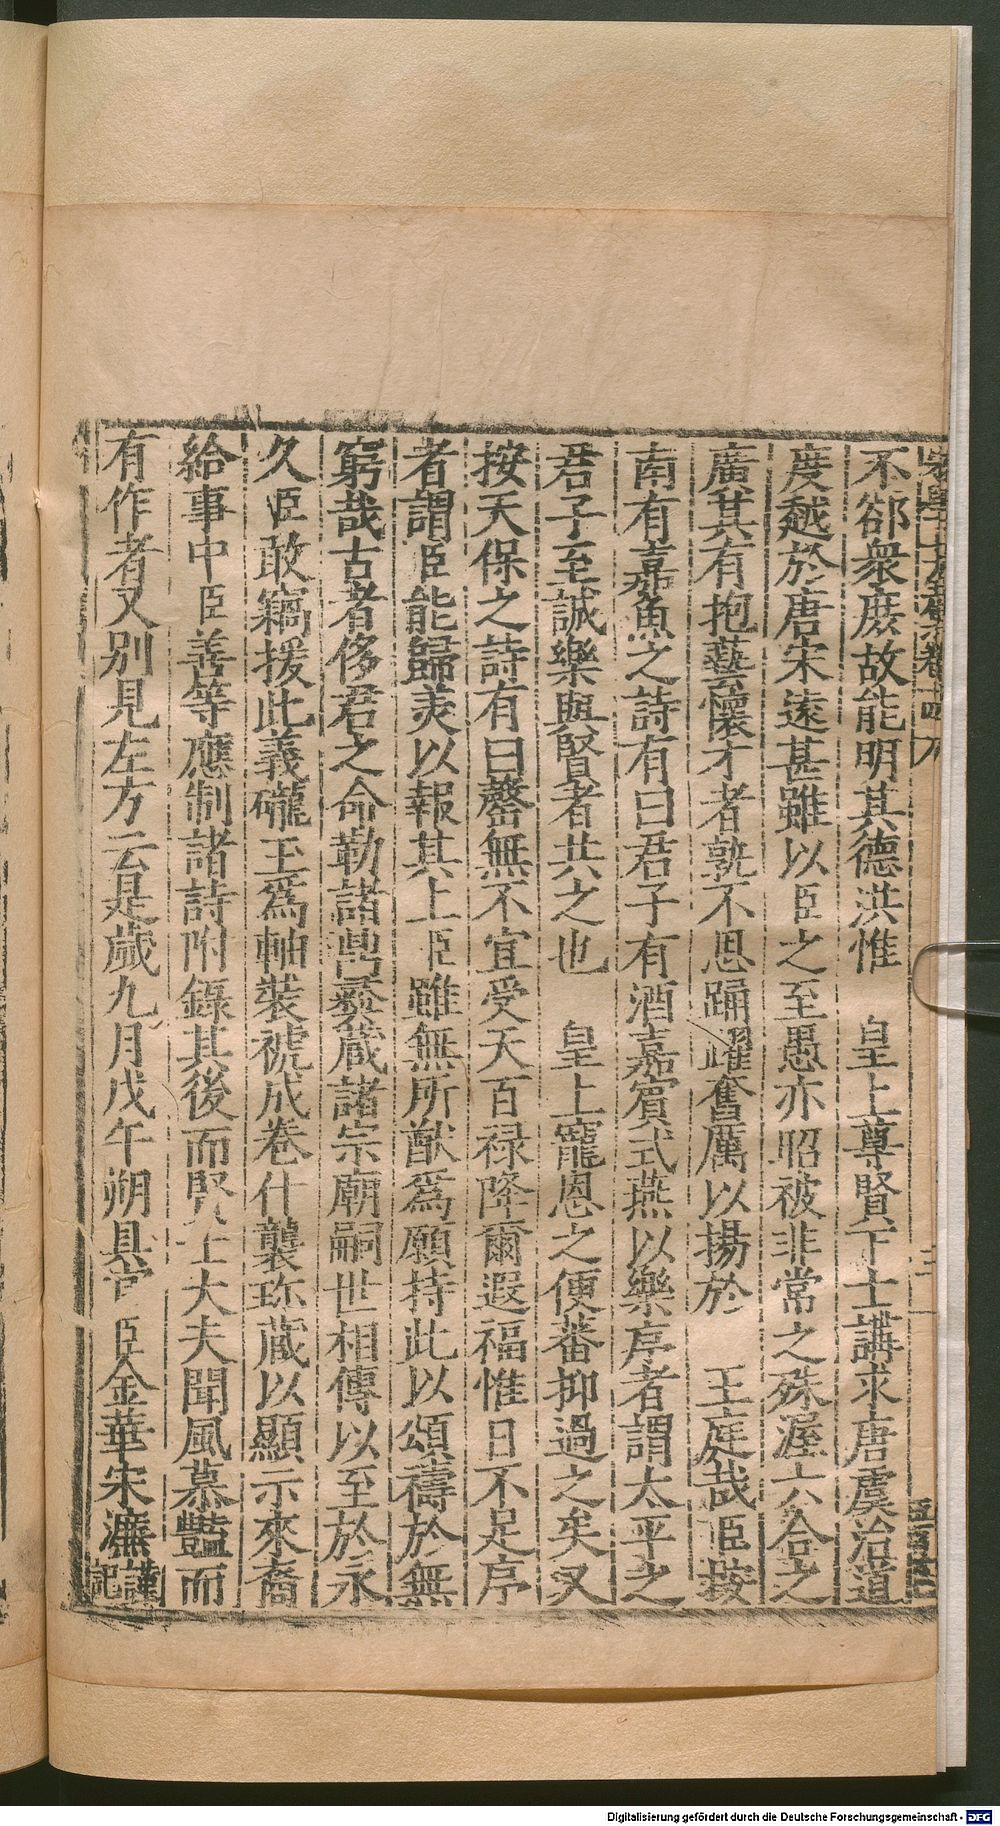 不卻衆庶故能明其德洪惟　皇上尊賢下士講求唐虞治道
度越於唐宋遠甚雖以臣之至愚亦昭被非常之殊渥六合之
廣其有抱藝懷才者孰不思踊躍奮厲以揚於　王庭哉臣按
南有嘉魚之詩有曰君子有酒嘉賓式燕以樂序者謂太平之
君子至誠樂與賢者共之也　皇上寵恩之便蕃抑過之矣又
按天保之詩有曰罄無不宜受天百禄降爾遐福惟日不足序
者謂臣能歸美以報其上臣雖無所猷爲願持此以頌禱於無
窮哉古者侈君之命勒諸鼎彝蔵諸宗廟嗣世相傳以至於永
久臣敢竊援此義礲玉爲軸裝褫成卷什襲珎蔵以顯示來裔
給事中臣善等應制諸詩附錄其後而賢士大夫聞風慕豔而
有作者又别見左方云是歲九月戊午朔具官臣金華宋濂謹記
Digitalisierung gefördert durch die Deutsche Forschungsgemeinschaft - DFG